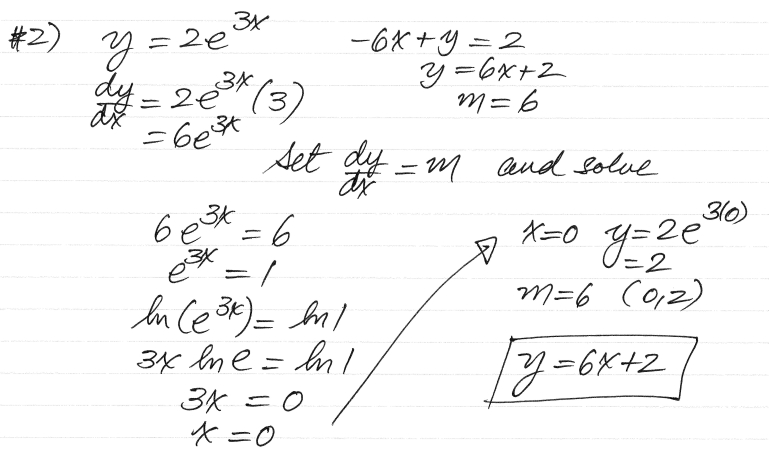 #2) y = 2e^{3x}
dy/dx = 2e^{3x}(3)
= 6e^{3x}
-6x + y = 2
y = 6x + 2
m = 6
Set dy/dx = m and solve
6e^{3x} = 6
e^{3x} = 1
ln(e^{3x}) = ln1
3x lne = ln1
3x = 0
x = 0
x=0 y=2e^{3(0)}
=2
m=6 (0,2)
y = 6x+2